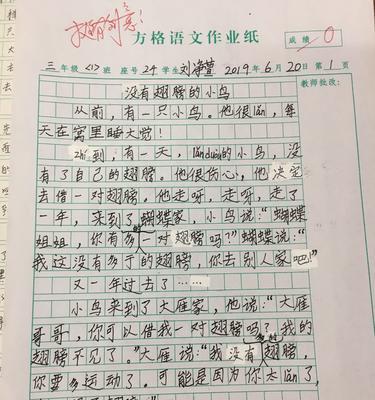 方格语文作业纸
成绩 0
三年级<1>班 座号24 学生刘净萱 2019年6月20日第1页
教师批改：
没有翅膀的小鸟
从前，有一只小鸟。他很lǎn，每
天在窝里睡大觉！
zhí到，有一天，lǎnduò的小鸟，没
有了自己的翅膀。他很伤心，他决定
去借一对翅膀。他走呀，走呀，走了
一年，来到了蝴蝶家，小鸟说：“蝴蝶
姐姐，你有多一对翅膀吗？”蝴蝶说：“
我这没有多于的翅膀，你去别人家吧！”
又一年过去了……
小鸟来到了大雁家，他说：“大雁
哥哥，你可以借我一对翅膀吗？我的
翅膀不见了。”大雁说：“我没有翅膀，
你要多运动了。可能是因为你太lǎn了，